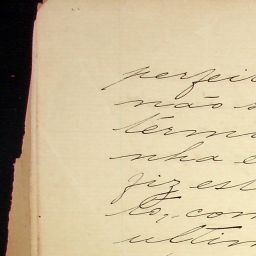 perfei
não s
termo
nha e
fiz est
to, com
ultim